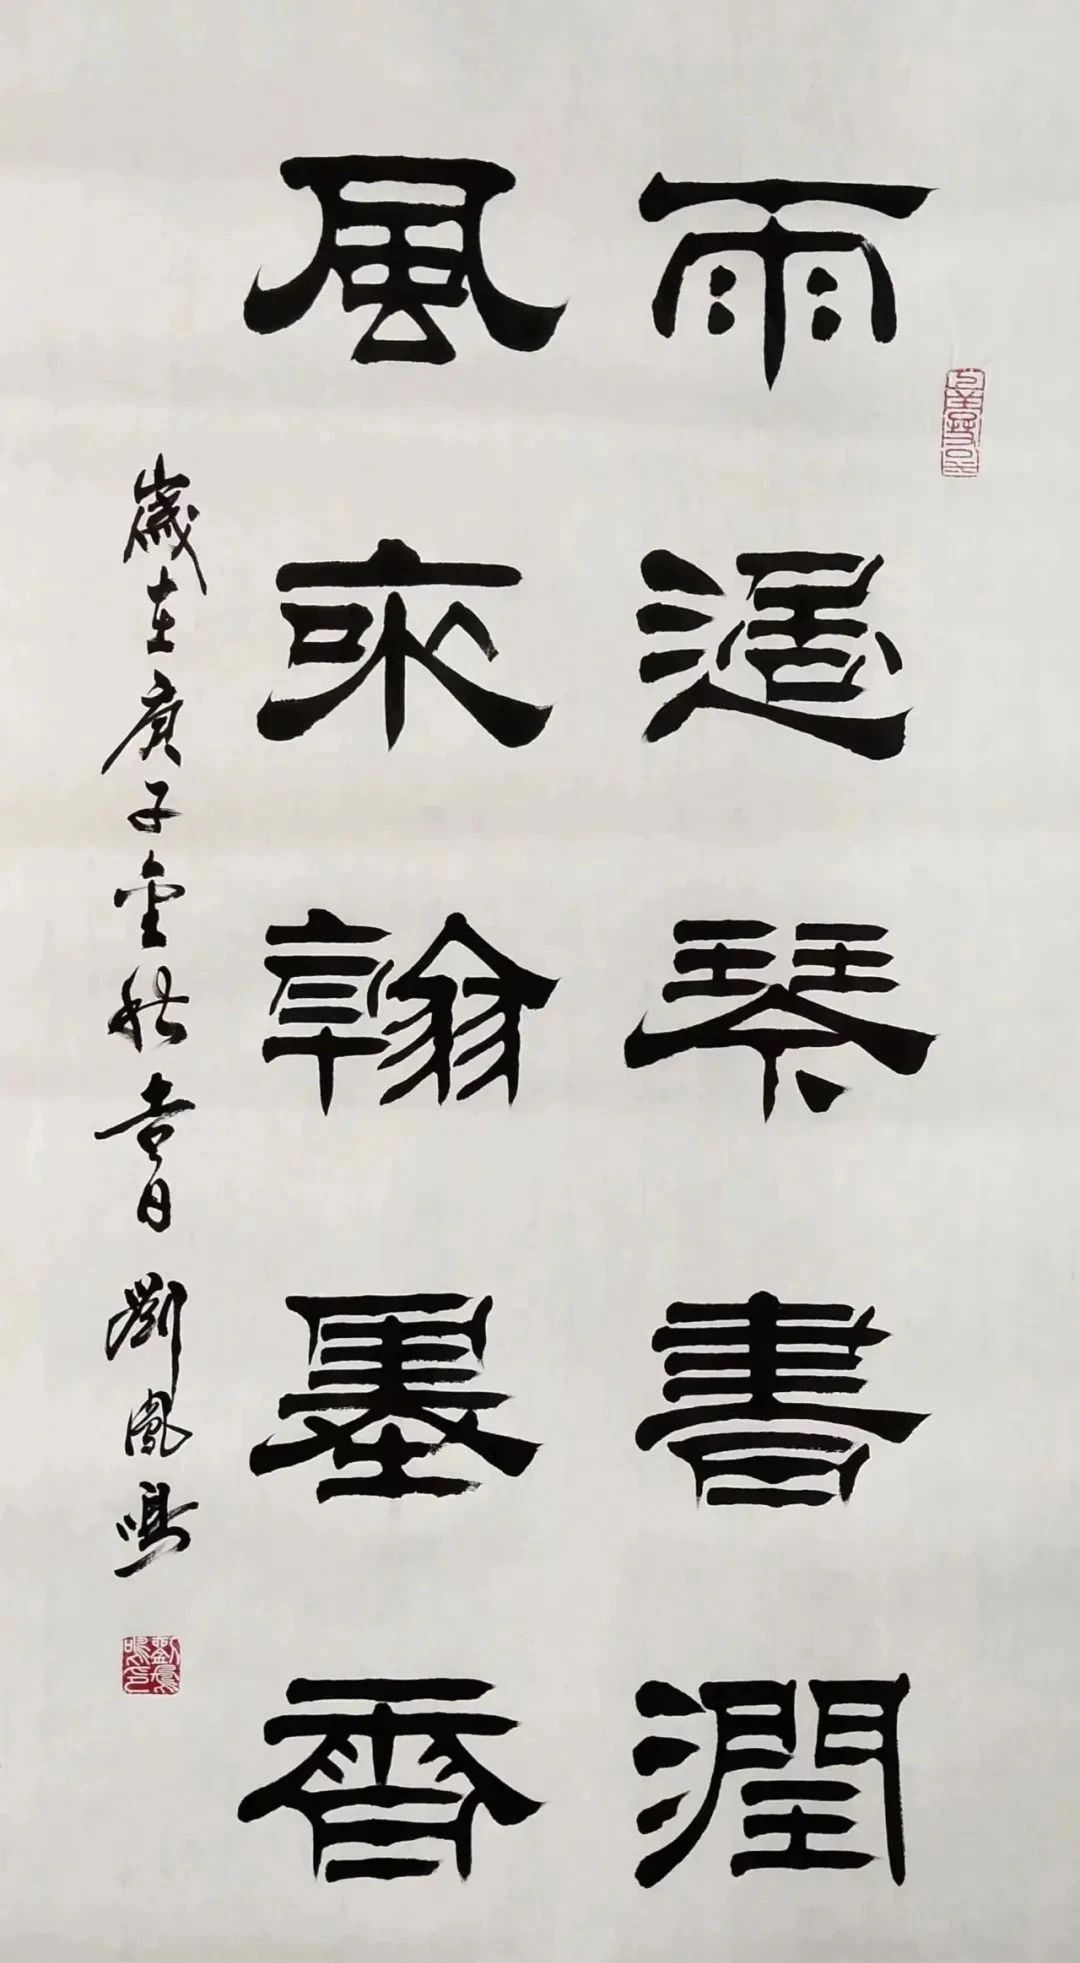 雨過琴書潤
風來翰墨香
歲在庚子金秋吉日劉鳳鳴
劉鳳鳴印